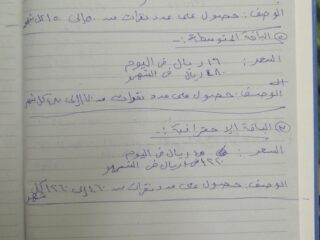 الوصف: حصول على عدد نقرات من ٥٠ إلى ١٥٠ كل شهر
② الباقة المتوسطة :-
السعر: ١٦ ريال في اليوم
٤٨٠ ريال في الشهر
الوصف: حصول على عدد نقرات من إلى كل شهر
③ الباقة الإحترافية :-
السعر: ريال في اليوم
ريال في الشهر
الوصف: حصول على عدد نقرات من إلى كل شهر